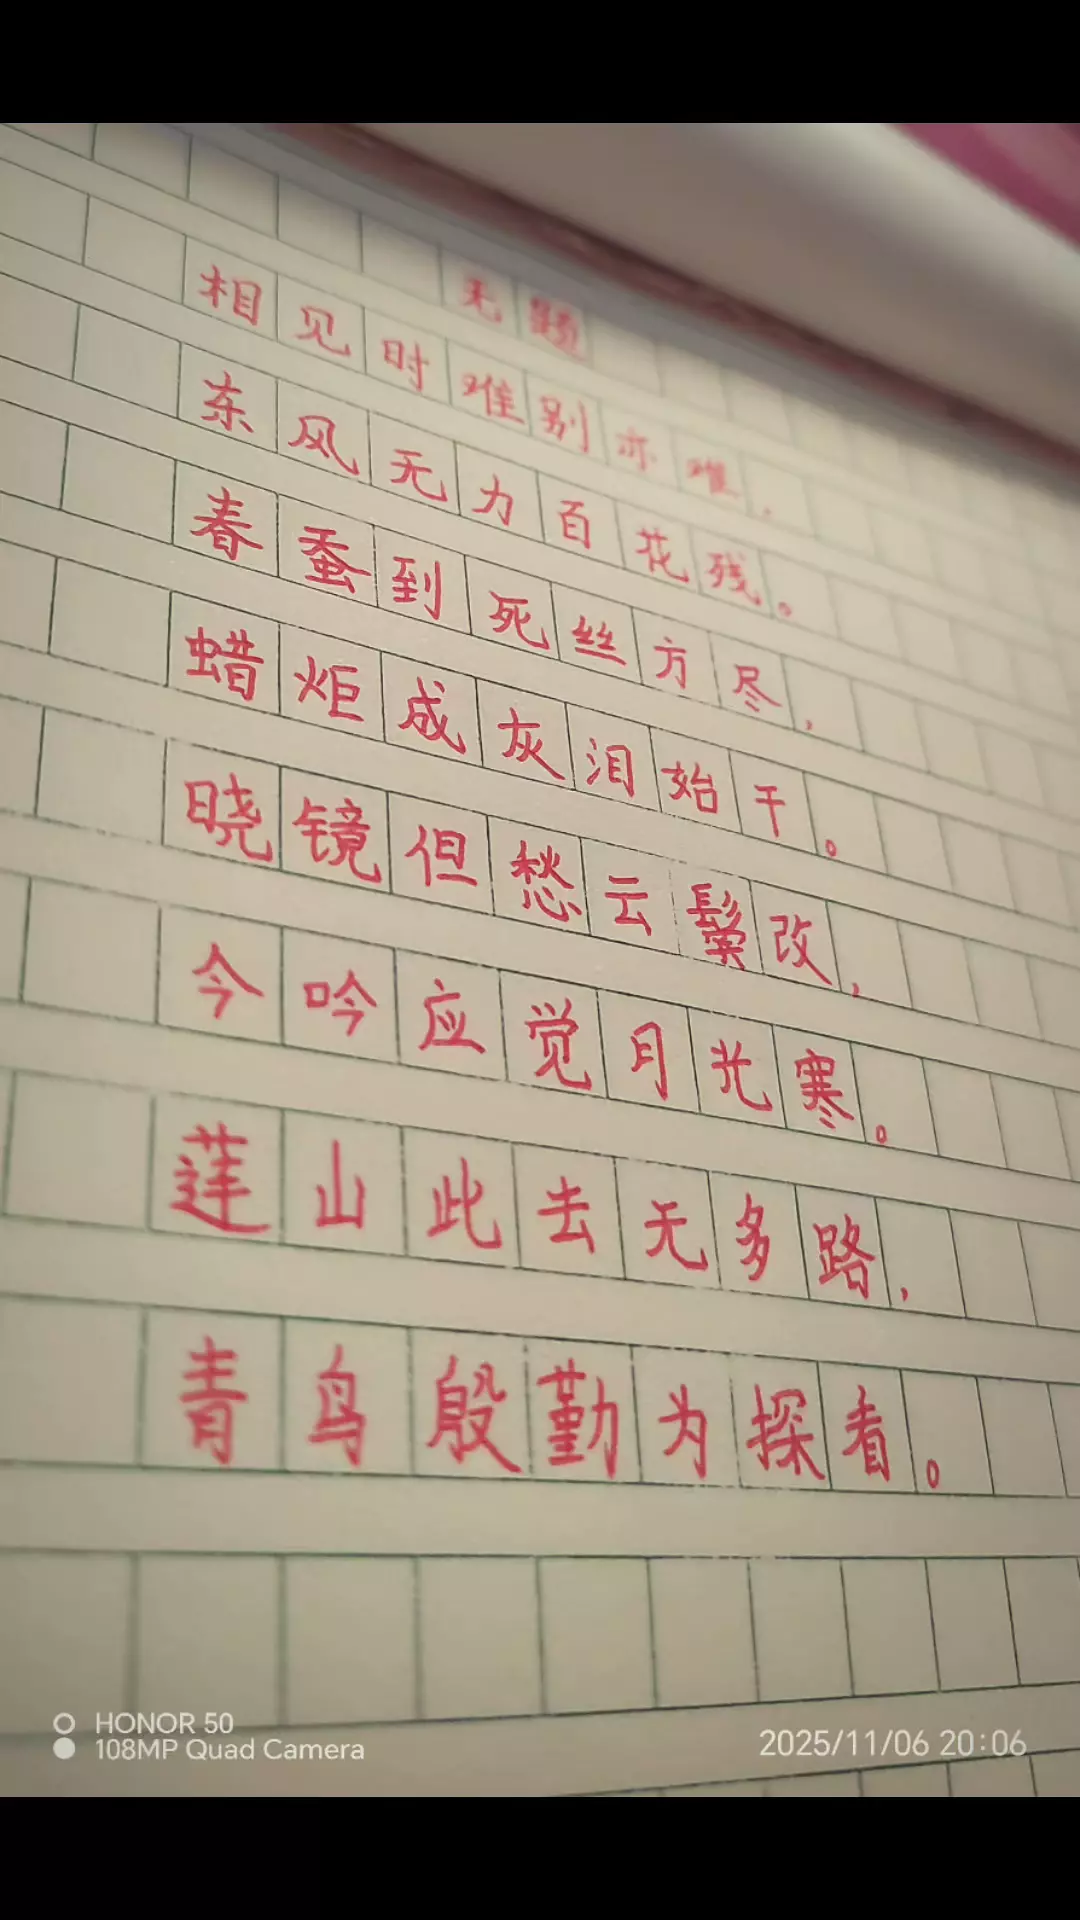 无题
相见时难别亦难，
东风无力百花残。
春蚕到死丝方尽，
蜡炬成灰泪始干。
晓镜但愁云鬓改，
今吟应觉月光寒。
莲山此去无多路，
青鸟殷勤为探看。
HONOR 50
108MP Quad Camera
2025/11/06 20:06